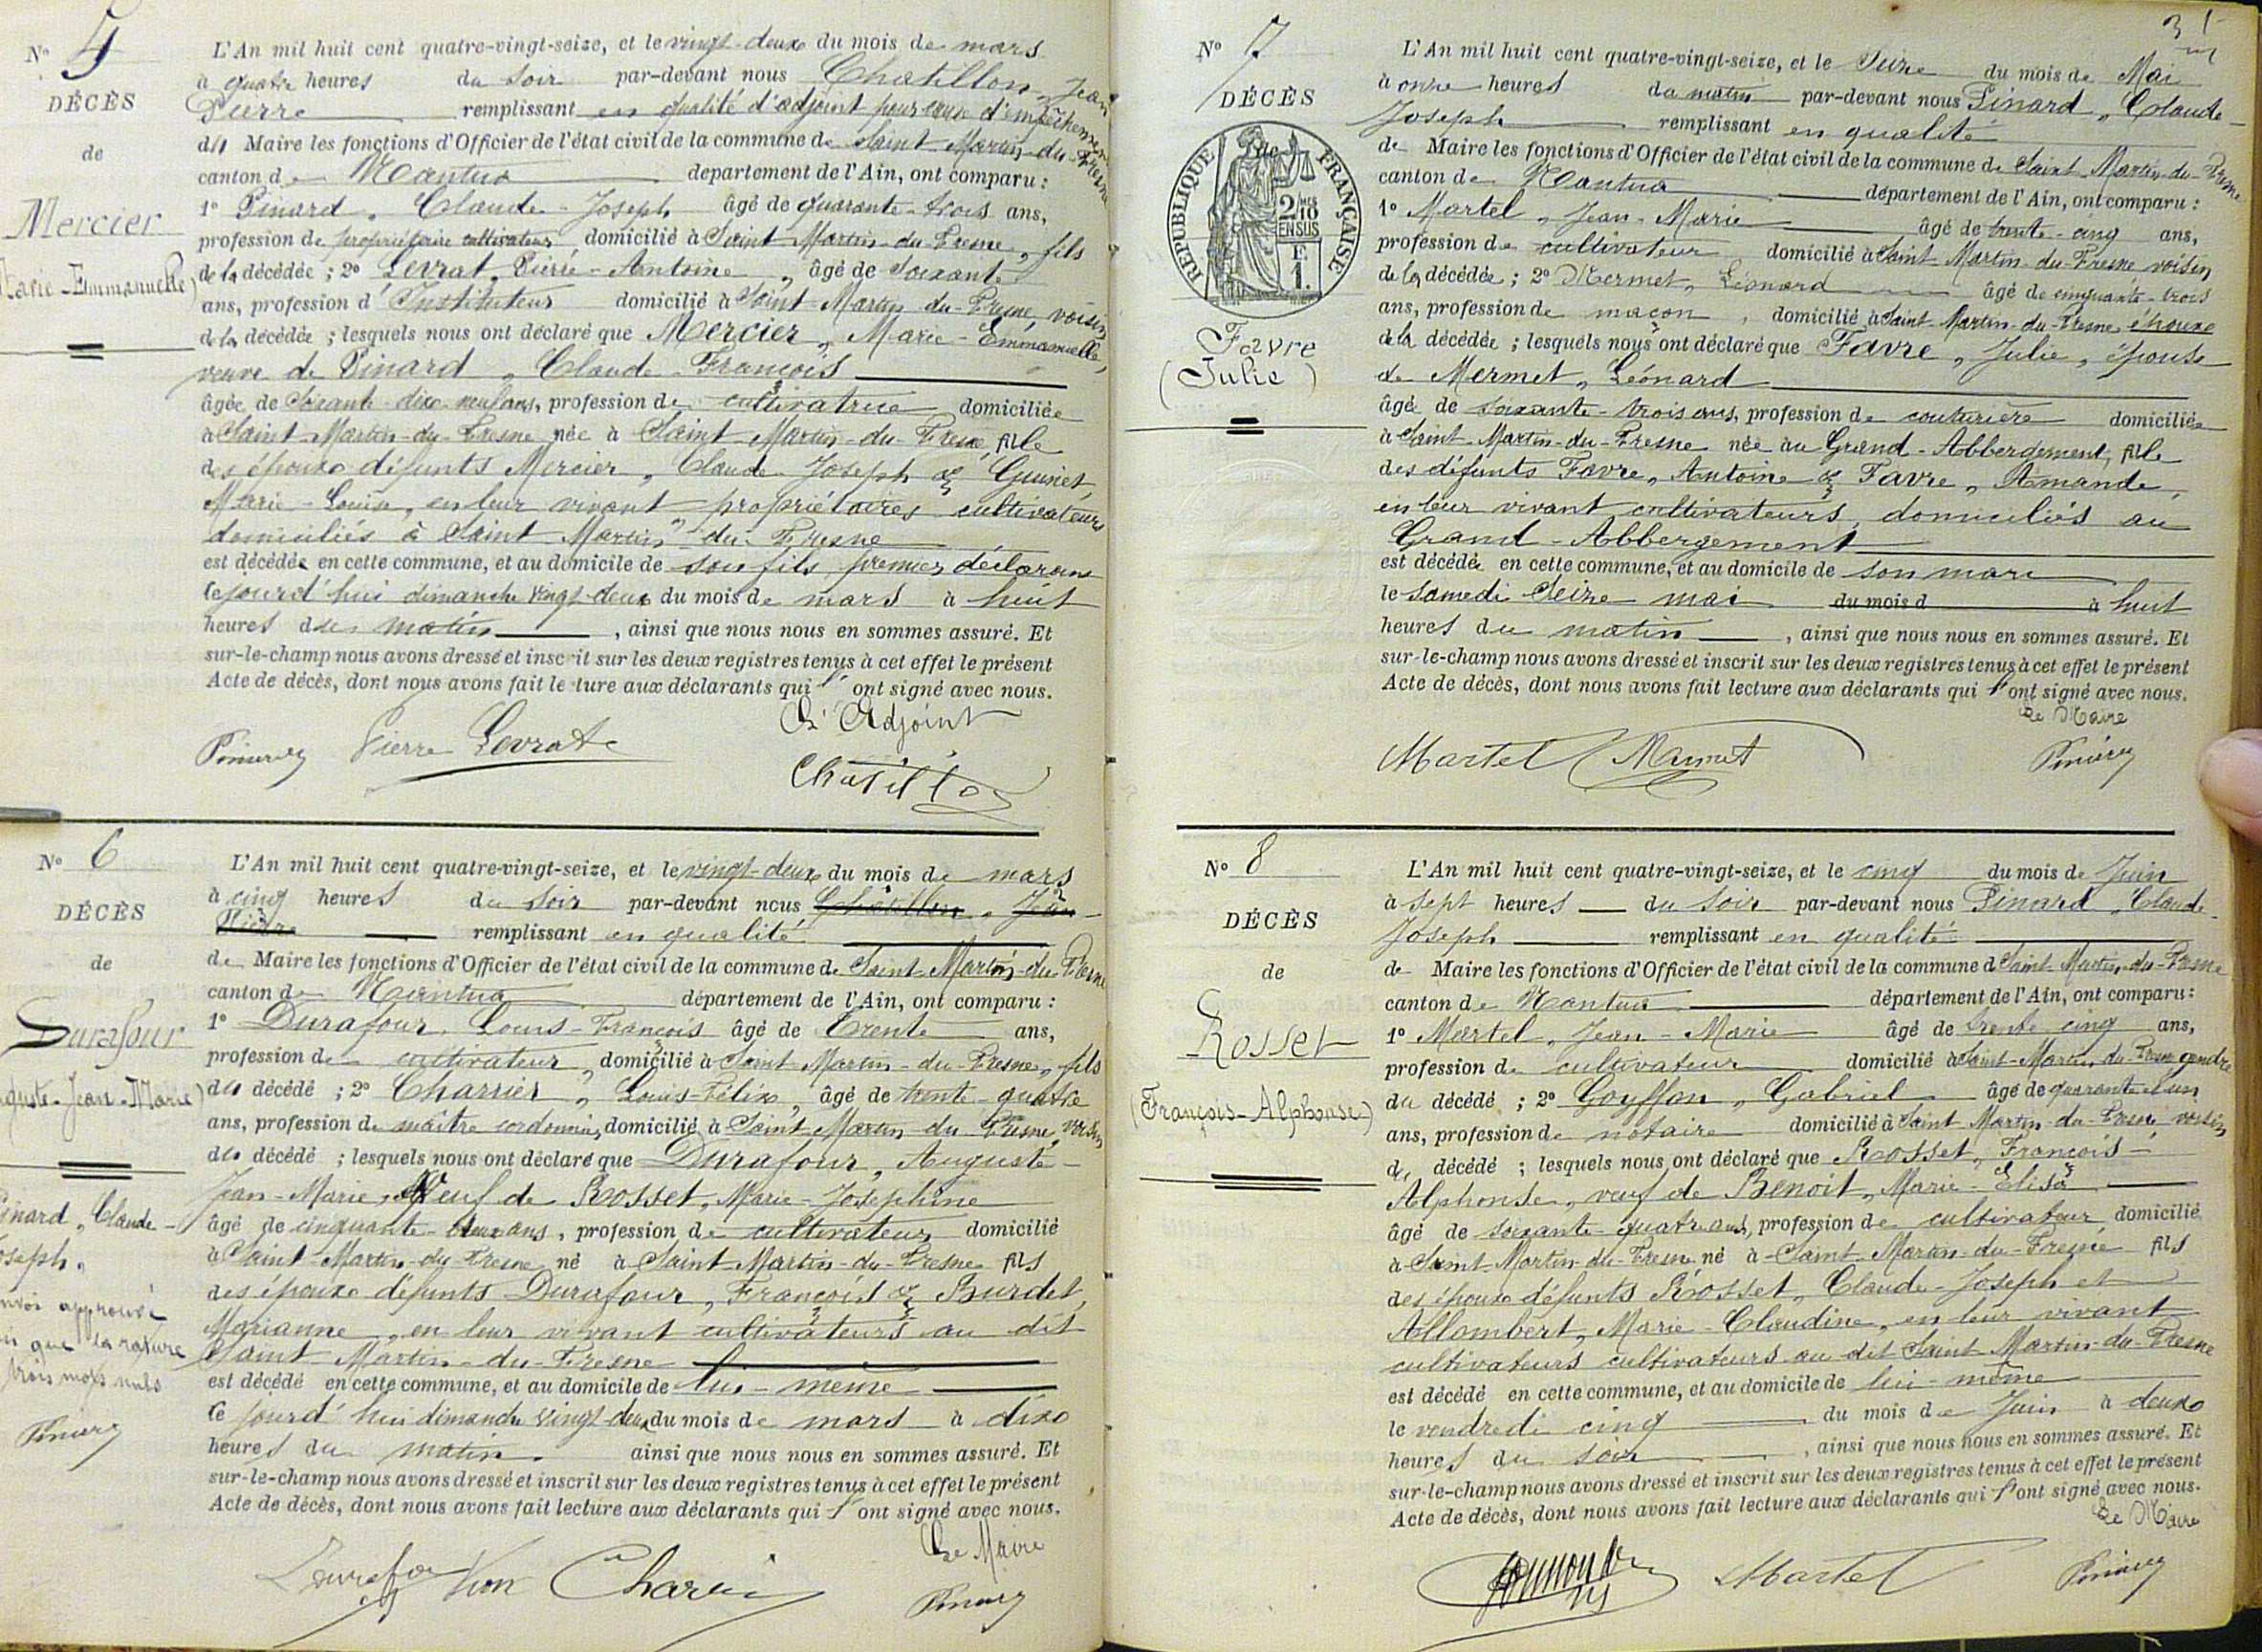 N° 5
DÉCÈS
de
Mercier
Marie-Emmanuelle)
L'An mil huit cent quatre-vingt-seize, et le vingt-deux du mois de mars
à quatre heures du soir par-devant nous Chatillon, Jean
Pierre remplissant en qualité d'adjoint pour cause d'empêchement
du Maire les fonctions d'Officier de l'état civil de la commune de Saint-Martin-du-Fresne
canton de Nantua département de l'Ain, ont comparu :
1° Pinard, Claude-Joseph âgé de quarante-trois ans,
profession de propriétaire cultivateur domicilié à Saint-Martin-du-Fresne, fils
de la décédée ; 2° Levrat, Pierre-Antoine, âgé de soixante
ans, profession d'Instituteur domicilié à Saint-Martin-du-Fresne, voisin
de la décédée ; lesquels nous ont déclaré que Mercier, Marie-Emmanuelle,
veuve de Pinard, Claude-François
âgée de soixante-dix-neuf ans, profession de cultivatrice domiciliée
à Saint-Martin-du-Fresne née à Saint-Martin-du-Fresne, fille
des époux défunts Mercier, Claude-Joseph & Guinet,
Marie-Louise, en leur vivant propriétaires cultivateurs
domiciliés à Saint-Martin-du-Fresne
est décédée en cette commune, et au domicile de son fils, premier déclarant
cejourd'hui dimanche vingt-deux du mois de mars à huit
heures du matin, ainsi que nous nous en sommes assuré. Et
sur-le-champ nous avons dressé et inscrit sur les deux registres tenus à cet effet le présent
Acte de décès, dont nous avons fait lecture aux déclarants qui l'ont signé avec nous.
L'Adjoint
Pierre Levrat
Chatillon
N° 6
DÉCÈS
de
Durafour
Auguste-Jean-Marie)
Pinard, Claude-
Joseph,
renvoi approuvé
ainsi que la rature
trois mots nuls
L'An mil huit cent quatre-vingt-seize, et le vingt-deux du mois de mars
à cinq heures du soir par-devant nous Chatillon, Jean-
Pierre remplissant en qualité
de Maire les fonctions d'Officier de l'état civil de la commune de Saint-Martin-du-Fresne
canton de Nantua département de l'Ain, ont comparu :
1° Durafour, Louis-François âgé de trente ans,
profession de cultivateur, domicilié à Saint-Martin-du-Fresne, fils
du décédé ; 2° Charrier, Louis-Félix, âgé de trente-quatre
ans, profession de maître cordonnier, domicilié à Saint-Martin-du-Fresne, voisin
du décédé ; lesquels nous ont déclaré que Durafour, Auguste-
Jean-Marie, veuf de Rosset, Marie-Joséphine
âgé de cinquante-deux ans, profession de cultivateur domicilié
à Saint-Martin-du-Fresne né à Saint-Martin-du-Fresne fils
des époux défunts Durafour, François & Burdet,
Marianne, en leur vivant cultivateurs au dit
Saint-Martin-du-Fresne
est décédé en cette commune, et au domicile de lui-même
ce jourd'hui dimanche vingt-deux du mois de mars à dix
heures du matin. ainsi que nous nous en sommes assuré. Et
sur-le-champ nous avons dressé et inscrit sur les deux registres tenus à cet effet le présent
Acte de décès, dont nous avons fait lecture aux déclarants qui l'ont signé avec nous.
Le Maire
N° 7
DÉCÈS
de
RÉPUBLIQUE FRANÇAISE
2/10 EN SUS
F. 1.
Favre
(Julie)
L'An mil huit cent quatre-vingt-seize, et le seize du mois de Mai
à onze heures du matin par-devant nous Pinard, Claude-
Joseph remplissant en qualité
de Maire les fonctions d'Officier de l'état civil de la commune de Saint-Martin-du-Fresne
canton de Nantua département de l'Ain, ont comparu :
1° Martel, Jean-Marie âgé de trente-cinq ans,
profession de cultivateur domicilié à Saint-Martin-du-Fresne voisin
de la décédée ; 2° Mermet, Léonard âgé de cinquante-trois
ans, profession de maçon, domicilié à Saint-Martin-du-Fresne époux
de la décédée ; lesquels nous ont déclaré que Favre, Julie, épouse
de Mermet, Léonard
âgée de soixante-trois ans, profession de couturière domiciliée
à Saint-Martin-du-Fresne née au Grand-Abbergement, fille
des défunts Favre, Antoine & Favre, Amande,
en leur vivant cultivateurs, domiciliés au
Grand-Abbergement
est décédée en cette commune, et au domicile de son mari
le samedi seize mai du mois d à huit
heures du matin, ainsi que nous nous en sommes assuré. Et
sur-le-champ nous avons dressé et inscrit sur les deux registres tenus à cet effet le présent
Acte de décès, dont nous avons fait lecture aux déclarants qui l'ont signé avec nous.
Le Maire
Martel Mermet
N° 8
DÉCÈS
de
Rosset
(François-Alphonse)
L'An mil huit cent quatre-vingt-seize, et le cinq du mois de Juin
à sept heures du soir par-devant nous Pinard, Claude-
Joseph remplissant en qualité
de Maire les fonctions d'Officier de l'état civil de la commune de Saint-Martin-du-Fresne
canton de Nantua département de l'Ain, ont comparu :
1° Martel, Jean-Marie âgé de trente-cinq ans,
profession de cultivateur domicilié à Saint-Martin-du-Fresne gendre
du décédé ; 2° Goyffon, Gabriel âgé de quarante et un
ans, profession de notaire domicilié à Saint-Martin-du-Fresne voisin
du décédé ; lesquels nous ont déclaré que Rosset, François-
Alphonse, veuf de Benoit, Marie-Elisa
âgé de soixante-quatre ans, profession de cultivateur domicilié
à Saint-Martin-du-Fresne né à Saint-Martin-du-Fresne fils
des époux défunts Rosset, Claude-Joseph et
Allombert, Marie-Claudine, en leur vivant
cultivateurs cultivateurs au dit Saint-Martin-du-Fresne
est décédé en cette commune, et au domicile de lui-même
le vendredi cinq du mois de Juin à deux
heures du soir, ainsi que nous nous en sommes assuré. Et
sur-le-champ nous avons dressé et inscrit sur les deux registres tenus à cet effet le présent
Acte de décès, dont nous avons fait lecture aux déclarants qui l'ont signé avec nous.
Le Maire
Martel